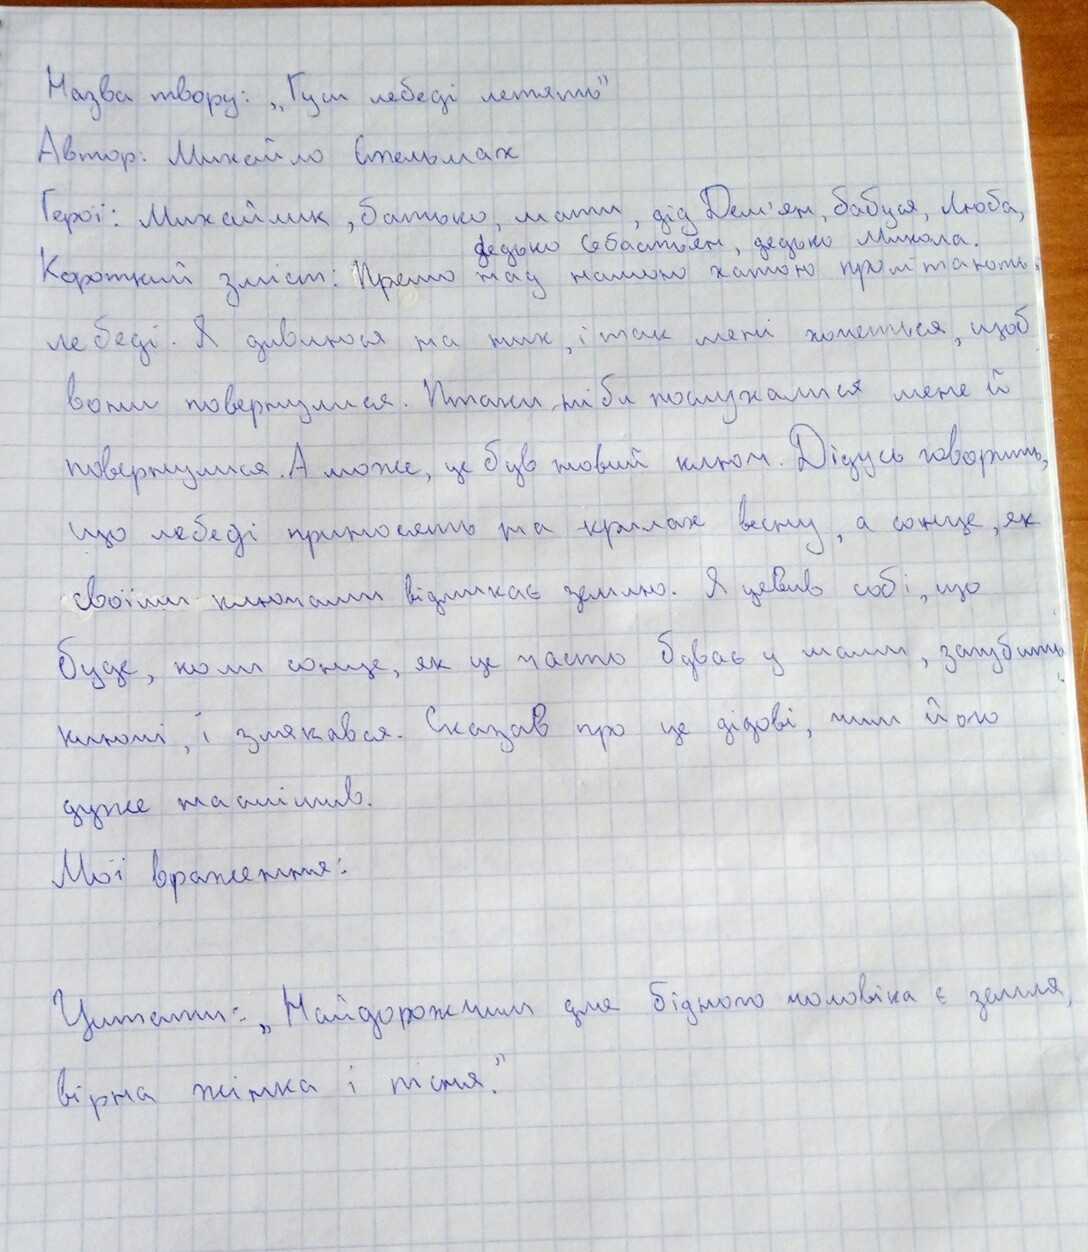 Назва твору: „Гуси лебеді летять"
Автор: Михайло Стельмах
Герої: Михайлик, батько, мати, дід Дем'ян, бабуся, Люба,
дедько Себастьян, дедько Микола.
Короткий зміст: Прямо над нашою хатою пролітають
лебеді. Я дивлюся на них, і так мені хочеться, щоб
вони повернулися. Птахи ніби послухалися мене й
повернулися. А може, це був новий ключ. Дідусь говорить,
що лебеді приносять на крилах весну, а сонце, як
своїми ключами відмикає землю. Я уявив собі, що
буде, коли сонце, як це часто буває у мами, загубить
ключі, і злякався. Сказав про це дідові, чим його
дуже насмішив.
Мої враження:
Цитати: „Найдорожчим для бідного чоловіка є земля,
вірна жінка і пісня."